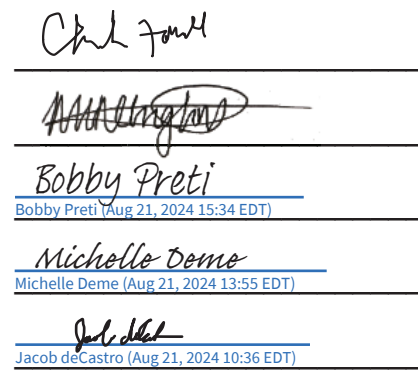 Bobby Preti
Bobby Preti (Aug 21, 2024 15:34 EDT)
Michelle Deme
Michelle Deme (Aug 21, 2024 13:55 EDT)
Jacob deCastro (Aug 21, 2024 10:36 EDT)